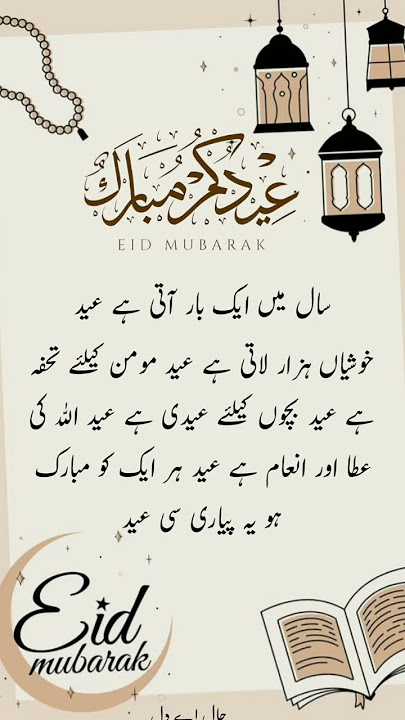 عيدكم مبارك
EID MUBARAK
سال میں ایک بار آتی ہے عید
خوشیاں ہزار لاتی ہے عید مومن کیلئے تحفہ
ہے عید بچوں کیلئے عیدی ہے عید اللہ کی
عطا اور انعام ہے عید ہر ایک کو مبارک
ہو یہ پیاری سی عید
Eid
mubarak